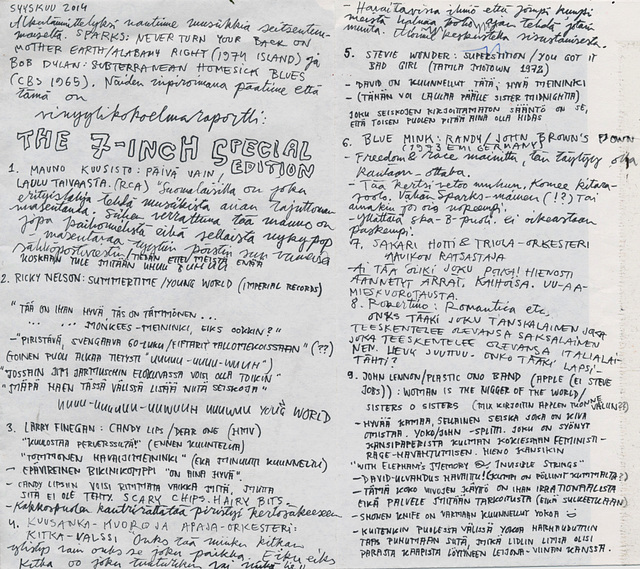 SYYSKUU 2014
Alkulämmittelyksi nautimme musiikkia seitsentum-
maiselta. SPARKS: NEVER TURN YOUR BACK ON
MOTHER EARTH/ALABAMY RIGHT (1974 ISLAND) JA
BOB DYLAN: SUBTERRANEAN HOMESICK BLUES
(CBS 1965). Näiden inspiroimana päätimme että
tämä on
vinyylikokoelmaraportti:
THE 7-INCH SPECIAL
EDITION
1. MAUNO KUUSISTO: PÄIVÄ VAIN/
LAULU TAIVAASTA. (RCA) "Suomalaisilla on joku
erityislahja tehdä musiikista aivan tajuttoman
masentavaa. Siihen verrattuna tää mauno on
jopa
masentavaa
KOSKAAN TULE MITÄÄN UHUU ENÄÄ
2. RICKY NELSON: SUMMERTIME/YOUNG WORLD (IMPERIAL RECORDS)
"TÄÄ ON IHAN HYVÄ, TÄS ON TÄMMÖNEN...
... MONKEES-MEININKI, EIKS OOKKIN?"
-"PIRISTÄVÄ, SVENGAAVA 60-LUKU/ (??)
(TOINEN PUOLI ALKAA TIETYSTI "UUUU-UUUU-WUUH")
"JOSSAIN JIPI JARMUSCHIN ELOKUVASSA VOISI OLLA TOIKIN"
"JÄÄPÄ HÄEN TÄSSÄ VÄLISSÄ LISÄÄ NIITÄ SEISKOJA"
UUUU-UUUUUU-UUWUUH UUUWUU YOUNG WORLD
3. LARRY FINEGAN: CANDY LIPS/DEAR ONE (HMV)
"KUULOSTAA PERVERSSILTÄ!" (ENNEN KUUNTELUA)
"TOMMONEN HAVAIJIMEININKI" (EKA MINUUTTI KUUNNELTU)
- EPÄVIREINEN BIKINIKOMPPI "ON AINA HYVÄ".
- CANDY LIPSIIN VOISI RIIMMATA VAIKKA MITÄ, MUTTA
SITÄ EI OLE TEHTY. SCARY CHIPS. HAIRY BITS.
- Kakkospuolen kautriratataa piristyi kertosäkeeseen
4. KUUSANKA-KUORO JA APAJA-ORKESTERI:
KITKA-VALSSI "Onks tää minkä kitkan
ylistys vain onks se joku paikka. Ei ku eiks
Kitka oo joku
- Havaittavissa ilmiö että jompi kumpi
meistä haluaa puhua jotain
muuta. Olemme
5. STEVIE WONDER: SUPERSTITION/YOU GOT IT
BAD GIRL (TAMLA MOTOWN 1972)
- DAVID ON KUUNNELLUT TÄTÄ, HYVÄ MEININKI
- (TÄHÄN VOI LAULAA PÄÄLLE SISTER MIDNIGHTIA)
JOKU SEISKOJEN KIRJOITTAMATON SÄÄNTÖ ON SE,
ETTÄ TOISEN PUOLEN PITÄÄ AINA OLLA HIDAS
6. BLUE MINK: RANDY/JOHN BROWN'S DOWN
(1973 EMI GERMANY)
- Freedom & race mainittu, tän täytyy olla
kantaan-ottava.
- Tää kertsi veto mukaan. Komee kitara-
soolo. Vähän Sparks-mainen (!?) Tai
ainakin jo ois nopeempi.
- yllättävä ska-B-puoli. ei oikeastaan
paskempi.
7. SAKARI HOTTI & TRIOLA-ORKESTERI
AAVIKON RATSASTAJA
AI TÄÄ OLIKI JOKU HIENOSTI
ÄÄNNETYT ÄRRÄT. KAIHOISA. UU-AA-
MIESKUOROTAUSTA.
8. Robertino: Romantica etc.
ONKS TÄÄKI JOKU TANSKALAINEN JOKA
TEESKENTELEE OLEVANSA SAKSALAINEN
JOKA TEESKENTELEE OLEVANSA ITALIALAI-
NEN. LIEVÄ JUUTTUU. ONKO TÄÄKI LAPSI-
TÄHTI?
9. JOHN LENNON/PLASTIC ONO BAND (APPLE (EI STEVE
JOBS)): WOMAN IS THE NIGGER OF THE WORLD/
SISTERS O SISTERS (MIX KIRJOITIN APPLEN TUONNE VÄLIIN??)
- HYVÄÄ KAMAA, SELLAINEN SEISKA JOKA ON KIVA
OMISTAA. YOKO/JOHN -SPLITTI. JOKU ON SYÖNYT
KANSIPAPERISTA KULMAN KOKIESSAAN FEMINISTI-
RAGE-HAVAHTUMISEN. HIENO KANSIKIN
"WITH ELEPHANT'S MEMORY & INVISIBLE STRINGS"
- DAVID-ULVAHDUS HAVAITTU! (KUMMAN ON PELIINIT KUMMALTA?)
- TÄMÄ KOKO VINYYLIEN KÄYTTÖ ON IHAN IRRATIONAALISTA
EIKÄ PALVELE MITÄÄN TARKOITUSTA (EIKÄ SULKEETKAAN)
- SHONEN KNIFE ON VARMAAN KUUNNELLUT YOKOA
- KUITENKIN PUOLESSA VÄLISSÄ YOKOA HARHAUDUTTIIN
TAAS PUHUMAAN SIITÄ, MIKÄ LIDLIN LIMSA OLISI
PARASTA KAAPISTA LÖYTYNEEN LEIJONA-VIINAN KANSSA.